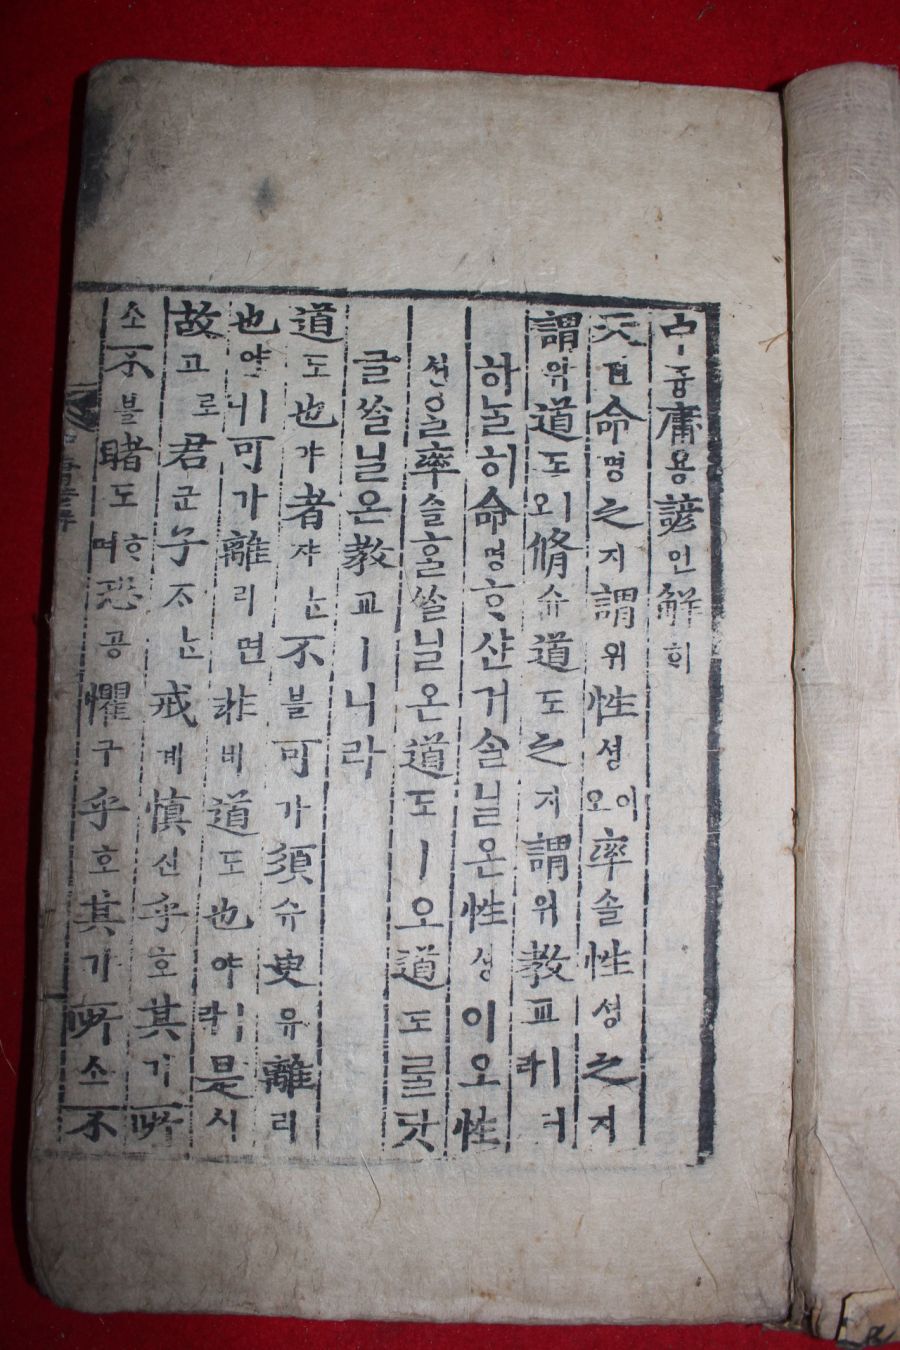 中듕庸용諺언解ᄒᆡ
天텬命명之지謂위性셩이오率솔性셩之지
謂위道도ㅣ오脩슈道도之지謂위敎교ㅣ니라
하ᄂᆞᆯ히命명ᄒᆞ샨거슬닐온性셩이오性
셩을率솔홀쓸닐온道도ㅣ오道도ᄅᆞᆯ닷
글쓸닐온敎교ㅣ니라
道도也야者쟈ᄂᆞᆫ不블可가須슈臾유離리
也야ㅣ니可가離리면非비道도也야ㅣ라是시
故고로君군子ᄌᆞᄂᆞᆫ戒계愼신乎호其기所
소不블睹도ᄒᆞ며恐공懼구乎호其기所소不